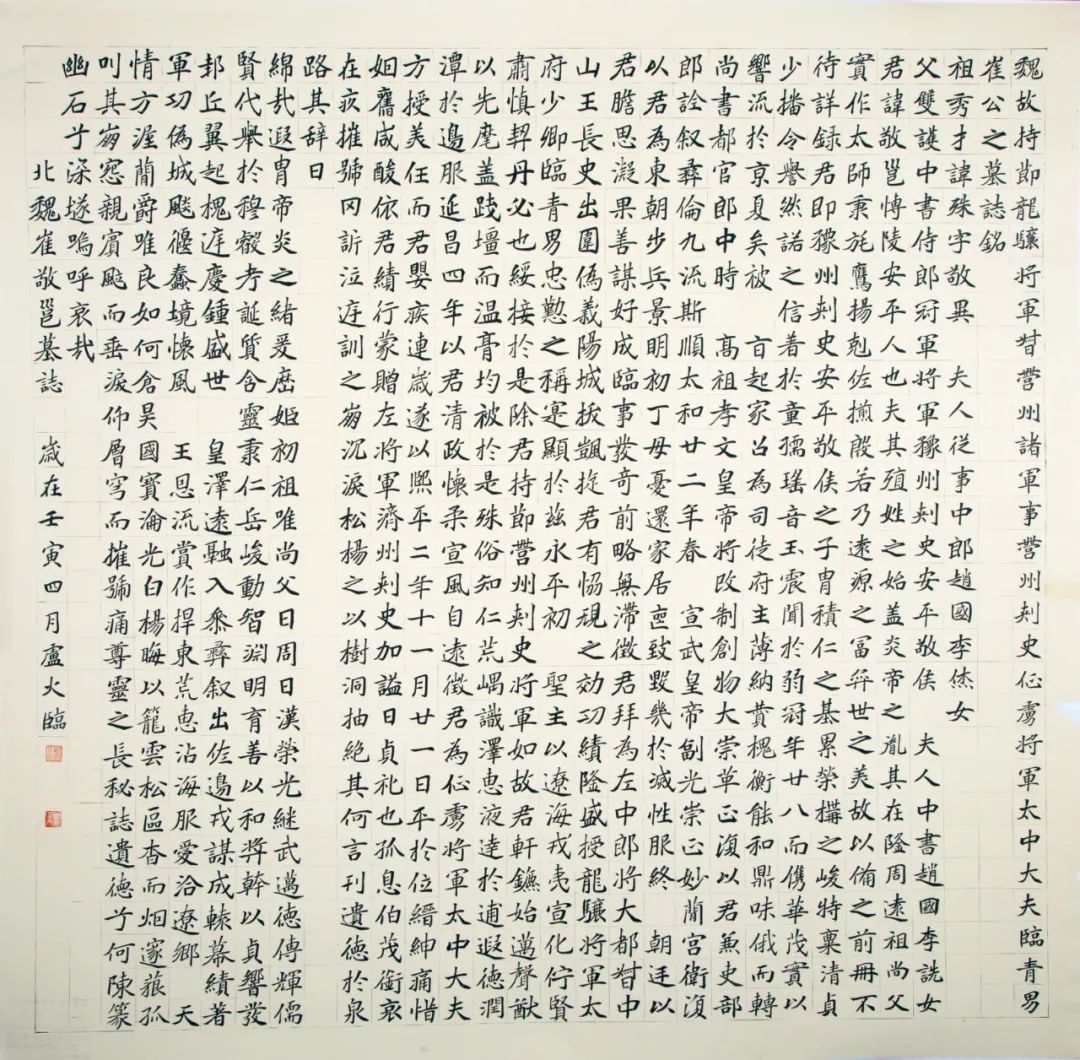 魏故持節龍驤將軍督營州諸軍事營州刺史征虜將軍太中大夫臨青男
崔公之墓誌銘
祖秀才諱殊字敬異 夫人從事中郎趙國李烋女
父雙護中書侍郎冠軍將軍豫州刺史安平敬侯 夫人中書趙國李詵女
君諱敬邕博陵安平人也夫其殖姓之始蓋炎帝之胤其在隆周遠祖尚父
實作太師秉旄鷹揚剋佐揃殷若乃遠源之富弈世之美故以備之前冊不
待詳錄君即豫州刺史安平敬侯之子胄積仁之基累榮構之峻特稟清貞
少播令譽然諾之信著於童孺瑤音玉震聞於弱冠年廿八而儁華茂實以
響流於京夏矣被 旨起家召為司徒府主薄納贊槐衡能和鼎味俄而轉
尚書都官郎中時 高祖孝文皇帝將改制創物大崇革正復以君兼吏部
郎詮敘彝倫九流斯順太和廿二年春 宣武皇帝副光崇正妙簡宮衛復
以君為東朝步兵景明初丁母憂還家居喪致毀幾於滅性服終 朝廷以
君膽思凝果善謀好成臨事發奇前略無滯徵君拜為左中郎將大都督中
山王長史出圍偽義陽城拔凱旋君有協規之效功績隆盛授龍驤將軍太
府少卿臨青男忠懃之稱寔顯於茲永平初 聖主以遼海戎夷宣化佇賢
肅慎契丹必也綏接於是除君持節營州刺史將軍如故君軒鑣始邁聲猷
以先麾蓋踐壇而溫膏均被於是殊俗知仁荒嵎識澤惠液達於逋遐德潤
潭於邊服延昌四年以君清政懷柔宣風自遠徵君為征虜將軍太中大夫
方授美任而君嬰疾連歲遂以熙平二年十一月廿一日卒於位縉紳痛惜
姻舊咸酸依君績行蒙贈左將軍濟州刺史加謚曰貞礼也孤息伯茂銜哀
在疚摧號罔訴泣庭訓之崩沉淚松楊之以樹洞抽絕其何言刊遺德於泉
路其辭曰
綿哉遐胄帝炎之緒爰歷姬初祖唯尚父曰周曰漢榮光繼武邁德傳輝儒
賢代舉於穆叡考誕質含靈秉仁岳峻動智淵明育善以和獎幹以貞響發
邦丘翼起槐庭慶鍾盛世 皇澤遠融入參彝敘出佐邊戎謀成轅幕績著
軍功偽城颷偃蠢境懷風 王恩流賞作捍東荒惠沾海服愛洽遼鄉 天
情方渥簡爵唯良如何倉昊國寶淪光白楊晦以籠雲松區杳而烟邃菉孤
叫其崩窓親賓颷而垂淚仰層穹而摧號痛尊靈之長秘誌遺德兮何陳篆
幽石兮深墜嗚呼哀哉
北魏崔敬邕墓誌 歲在壬寅四月盧火臨